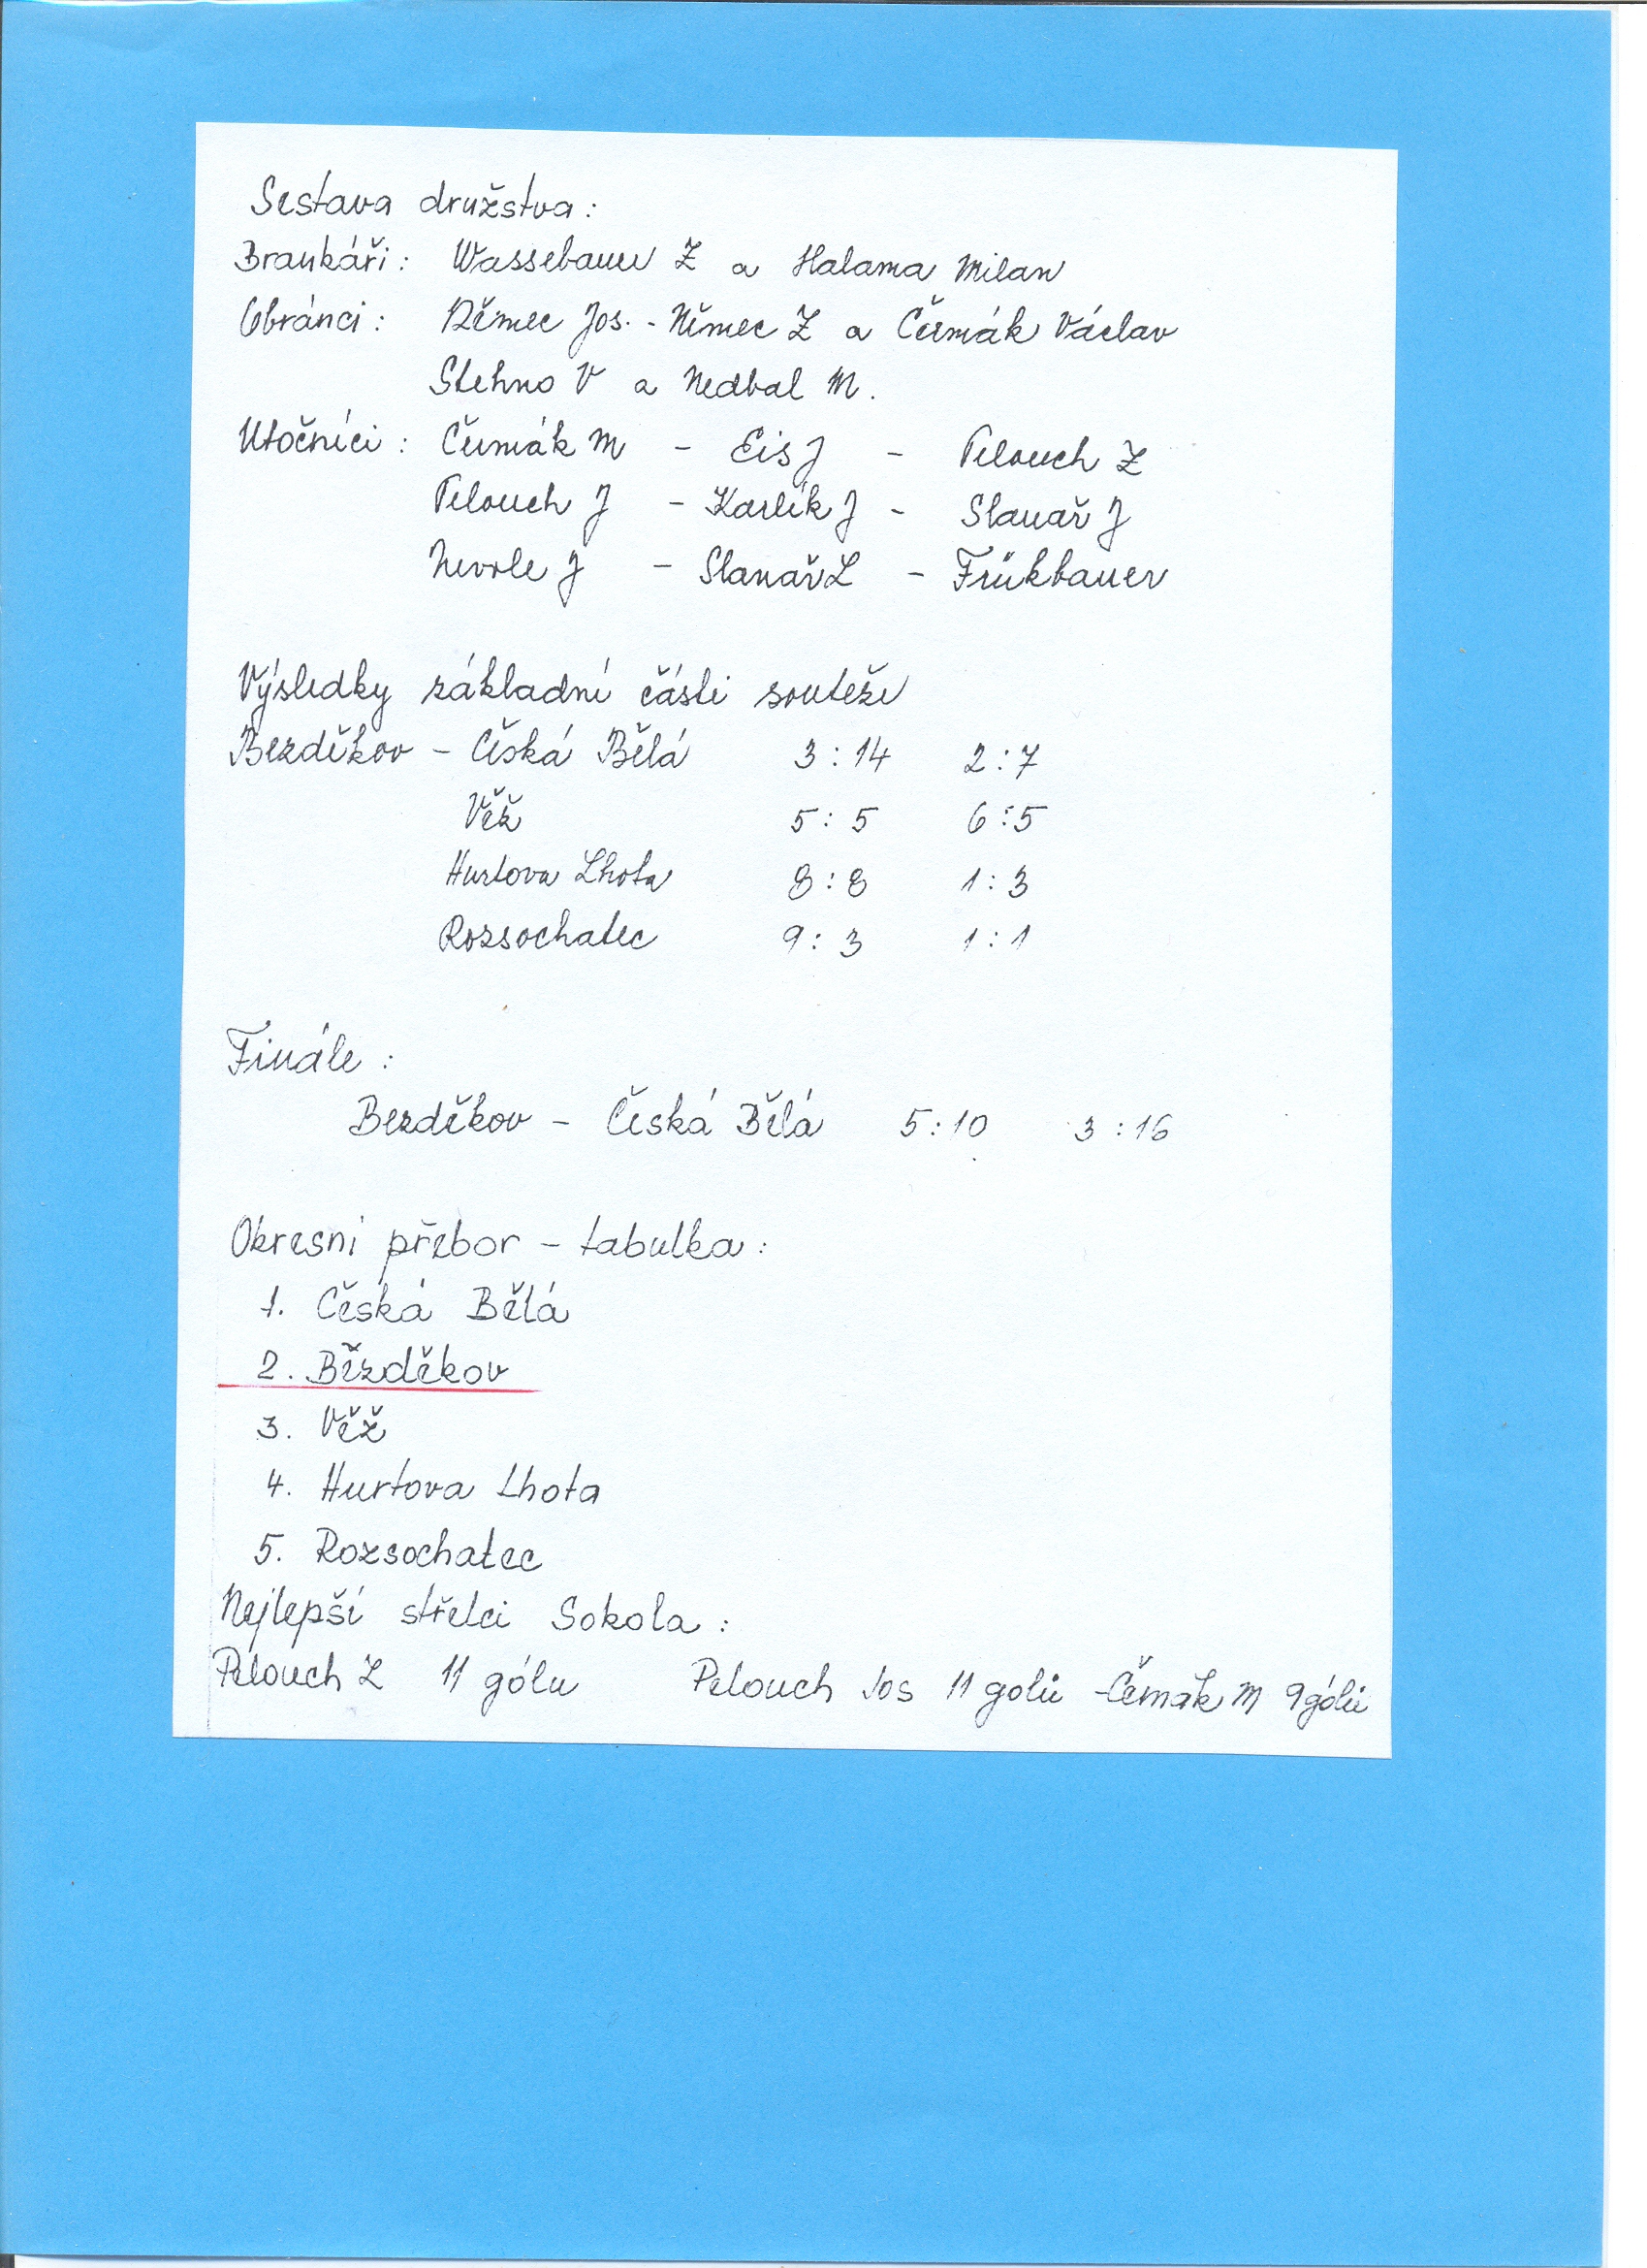 Sestava družstva:
Brankáři: Wassebauer Z a Halama Milan
Obránci: Němec Jos. - Němec Z a Čermák Václav
Stehno V a Nedbal M.
Utočníci: Čermák M - Eis J - Pelouch Z
Pelouch J - Karlík J - Slanař J
Nevole J - Slanař L - Frükbauer
Výsledky základní části soutěže
Bezděkov - Česká Bělá 3:14 2:7
Věž 5:5 6:5
Hurtova Lhota 8:8 1:3
Rozsochatec 9:3 1:1
Finále:
Bezděkov - Česká Bělá 5:10 3:16
Okresni přebor - tabulka:
1. Česká Bělá
2. Bězděkov
3. Věž
4. Hurtova Lhota
5. Rozsochatec
Nejlepší střelci Sokola:
Pelouch Z 11 gólu Pelouch Jos 11 golů - Čemák M 9 gólů